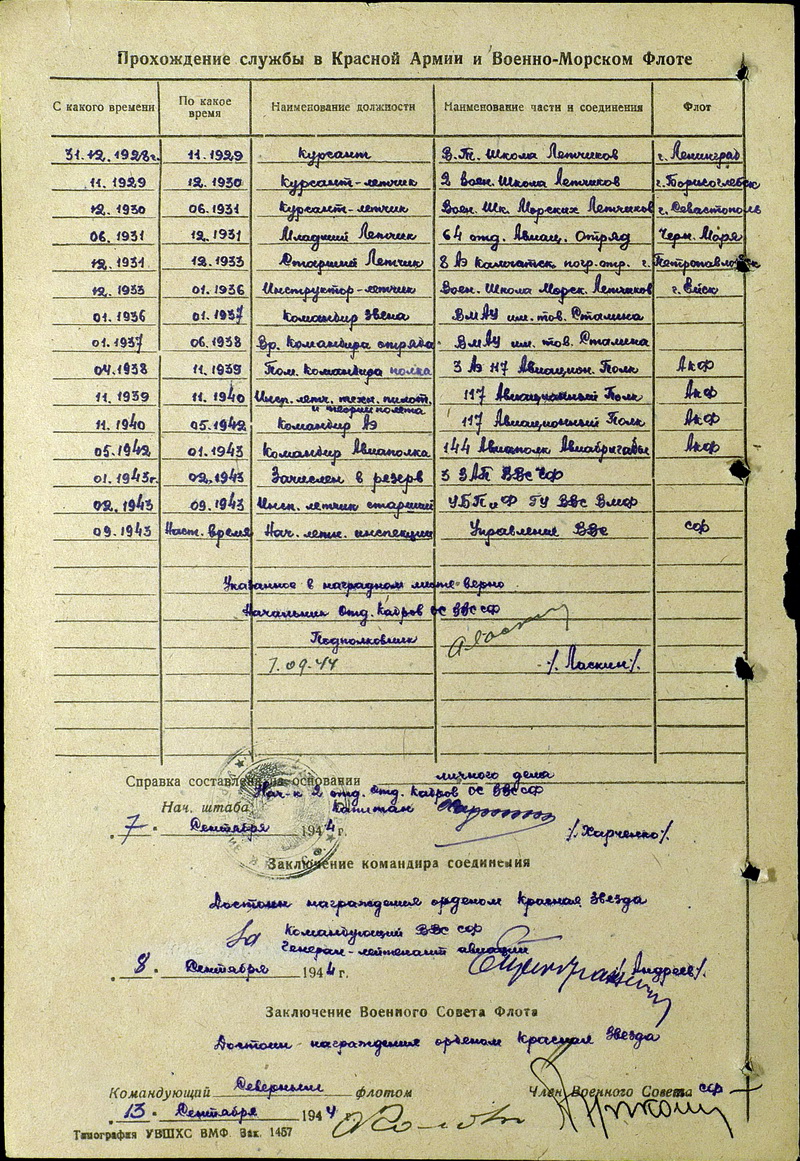 Прохождение службы в Красной Армии и Военно-Морском Флоте
С какого времени По какое время Наименование должности Наименование части и соединения Флот
31.12.1928г. 11.1929 Курсант В.Т. Школа Летчиков г. Ленинград
11.1929 12.1930 Курсант-летчик 2 воен. Школа Летчиков г. Борисоглебск
12.1930 06.1931 Курсант-летчик Воен. Шк. Морских Летчиков г. Севастополь
06.1931 12.1931 Младший Летчик 64 отд. Авиац. Отряд Черн. Моря
12.1931 12.1933 Старший Летчик 8 АЭ Камчатск. погр. отр. г. Петропавловск
12.1933 01.1936 Инструктор-летчик Воен. Школа Морск. Летчиков г. Ейск
01.1936 01.1937 Командир звена ВМАУ им. тов. Сталина
01.1937 06.1938 Вр. Командира отряда ВМАУ им. тов. Сталина
04.1938 11.1939 Пом. Командира полка 3 АЭ 117 Авиацион. Полк АкФ
11.1939 11.1940 Инсп. летч. техн. пилот. и теории полета 117 Авиационный Полк АкФ
11.1940 05.1942 Командир АЭ 117 Авиационный Полк АкФ
05.1942 01.1943 Командир Авиаполка 144 Авиаполк Авиабригады АкФ
01.1943г. 02.1943 Зачислен в резерв 3 ЗАП ВВС ЧФ
02.1943 09.1943 Инсп. летчик старший УБП и Ф ГУ ВВС ВМФ
09.1943 Наст. время Нач. летн. инспекции Управление ВВС СФ
Указанное в наградном листе верно
Начальник Отд. Кадров ОС ВВС СФ
Подполковник
7.09.44 /Ласкин/.
Справка составлена на основании личного дела
Нач-к 2 отд. Отд. Кадров ОС ВВС СФ
Нач. штаба Капитан
„7" Сентября 1944 г. /Харченко/.
Заключение командира соединения
Достоин награждения орденом Красная Звезда
За Командующий ВВС СФ
Генерал-лейтенант авиации
„8" Сентября 1944 г. /Андреев/.
Заключение Военного Совета Флота
Достоин награждения орденом Красная Звезда
Командующий Северным флотом Член Военного Совета СФ
„13" Сентября 1944 г.
Типография УВШХС ВМФ. Зак. 1457